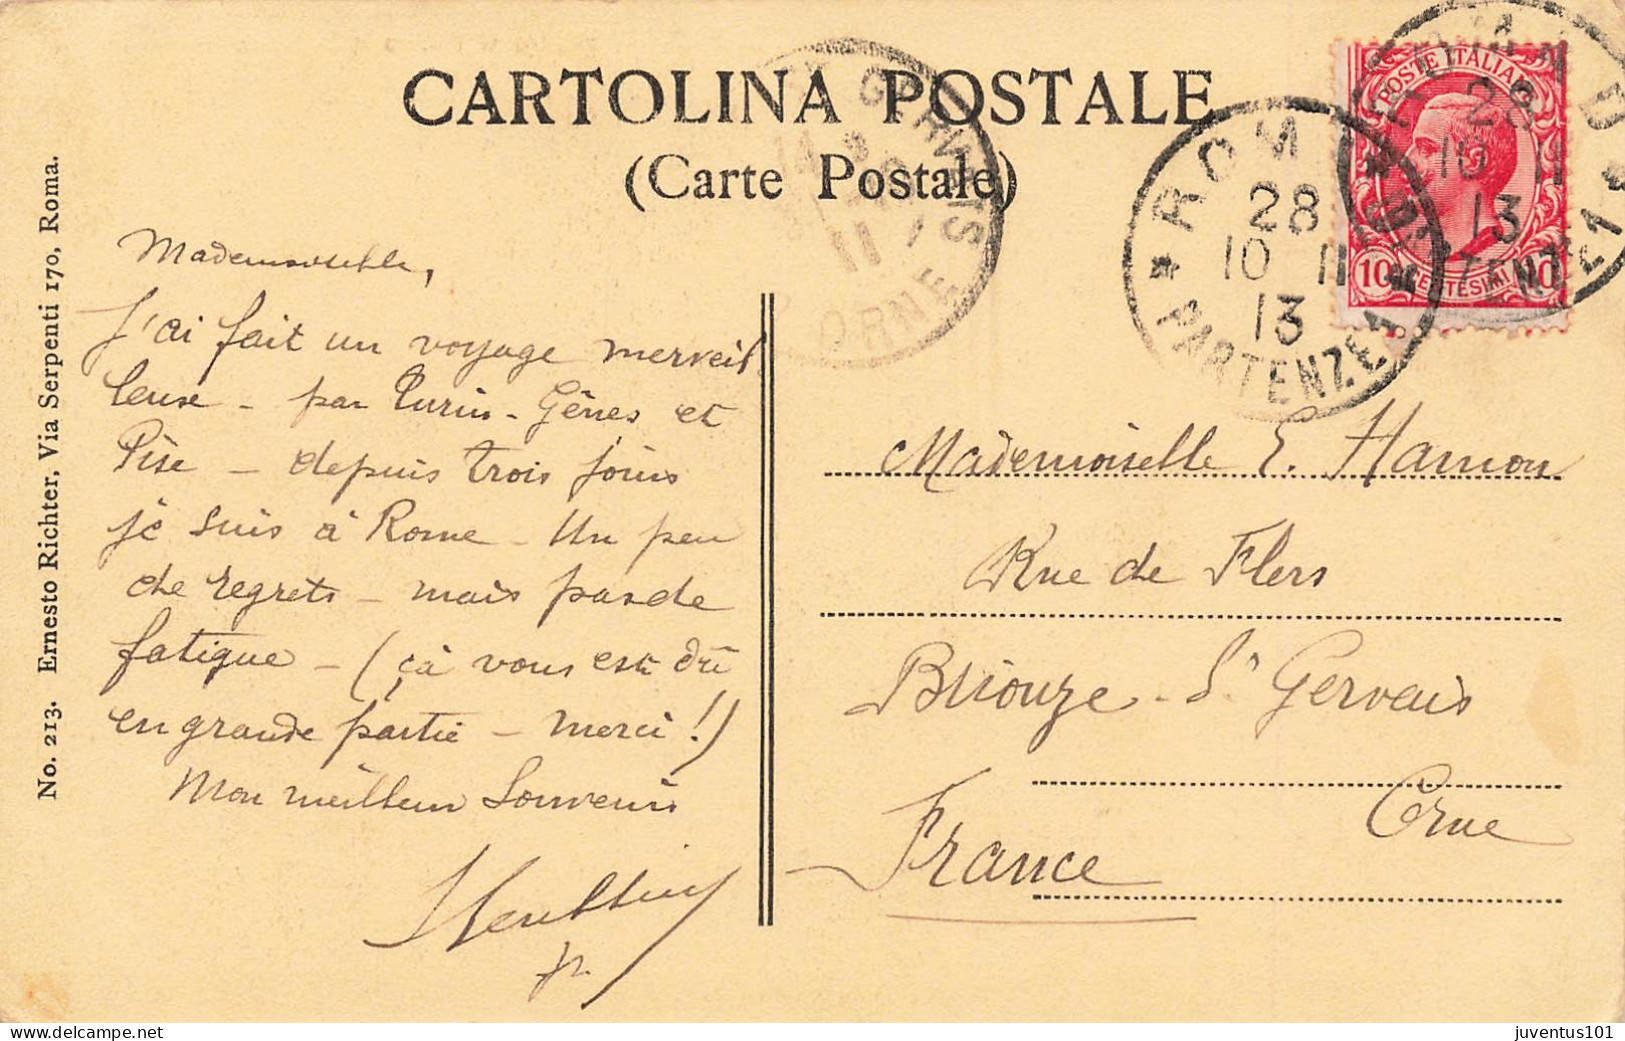 CARTOLINA POSTALE
(Carte Postale)
No. 213. Ernesto Richter, Via Serpenti 170, Roma.
Mademoiselle,
J'ai fait un voyage merveil
leuse - par Turin - Gênes et
Pise - depuis trois jours
je suis à Rome - Un peu
de regrets - mais pas de
fatigue - (çà vous est dû
en grande partie - merci !)
Mon meilleur Souvenir
POSTE ITALIANE
10 CENTESIMI 10
ROMA
28
10 11
13
PARTENZE
28
10 11
13
GERVAIS
11
ORNE
Mademoiselle E. Hamon
Rue de Flers
Briouze - St Gervais
Orne
France
delcampe.net
juventus101